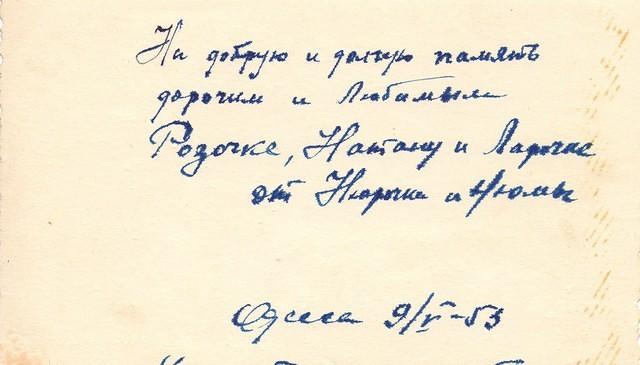 На добрую и долгую память
дорогим и Любимым
Розочке, Натану и Ларочке
от Нюрочки и Нюмы
Одесса 9/V-53